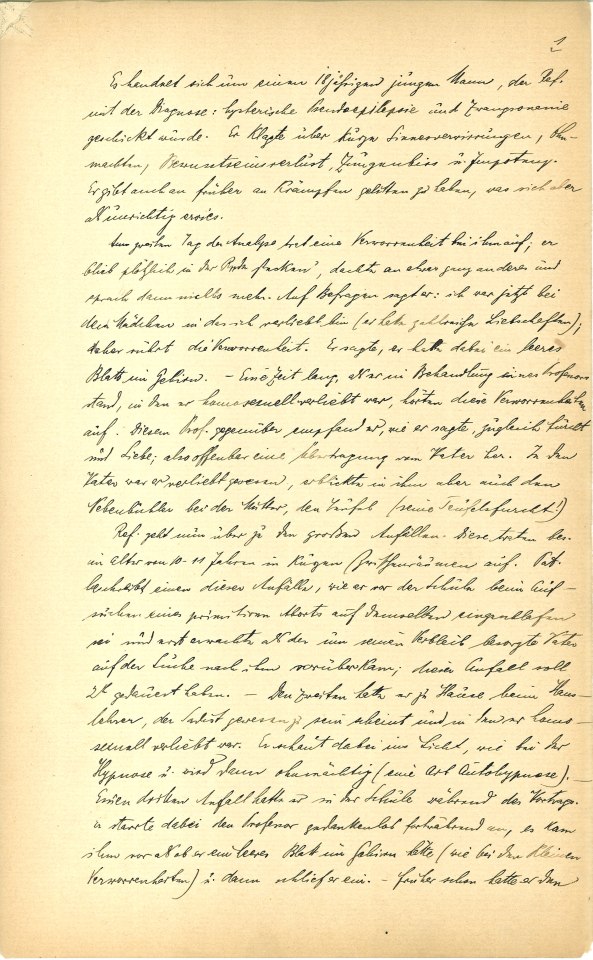 1
Es handelt sich um einen 18jährigen jungen Mann, der Ref.
mit der Diagnose: hysterische Pseudoepilepsie und Zwangsonanie
geschickt wurde. Er klagte über kurze Sinnesverwirrungen, Ohn-
machten, Bewusstseinsverlust, Zungenbiss u. Impotenz.
Er gibt auch an früher an Krämpfen gelitten zu haben, was sich aber
als unrichtig erwies.
Am zweiten Tag der Analyse trat eine Verworrenheit bei ihm auf; er
blieb plötzlich in der Rede stecken, dachte an etwas ganz anderes und
sprach dann nichts mehr. Auf Befragen sagt er: ich war jetzt bei
dem Mädchen in das ich verliebt bin (er hatte zahlreiche Liebschaften);
daher rührt die Verworrenheit. Er sagte, er hatte dabei ein leeres
Blatt im Gehirn. – Eine Zeit lang, als er in Behandlung eines Professors
stand, in den er homosexuell verliebt war, hörten diese Verworrenheiten
auf. Diesem Prof. gegenüber empfand er, wie er sagte, zugleich Furcht
und Liebe; also offenbar eine Übertragung vom Vater her. In den
Vater war er verliebt gewesen, erblickte in ihm aber auch den
Nebenbuhler bei der Mutter, den Teufel (seine Teufelsfurcht!)
Ref. geht nun über zu den großen Anfällen. Diese traten bes.
im Alter von 10-11 Jahren in kurzen Zwischenräumen auf. Pat.
beschreibt einen dieser Anfälle, wie er vor der Schule beim Auf-
suchen eines primitiven Aborts auf demselben eingeschlafen
sei und erst erwachte als der um seinen Verbleib besorgte Vater
auf der Suche nach ihm vorüberkam; dieser Anfall soll
2h gedauert haben. – Den zweiten hatte er zu Hause beim Haus-
lehrer, der Sadist gewesen zu sein scheint und in den er homo-
sexuell verliebt war. Er schaut dabei ins Licht, wie bei der
Hypnose u. wird dann ohnmächtig (eine Art Autohypnose). –
Einen dritten Anfall hatte er in der Schule während des Vortrags.
Er starrte dabei den Professor gedankenlos fortwährend an, es kam
ihm vor als ob er ein leeres Blatt im Gehirn hätte (wie bei den kleinen
Verworrenheiten) u. dann schlief er ein. – Früher schon hatte er den